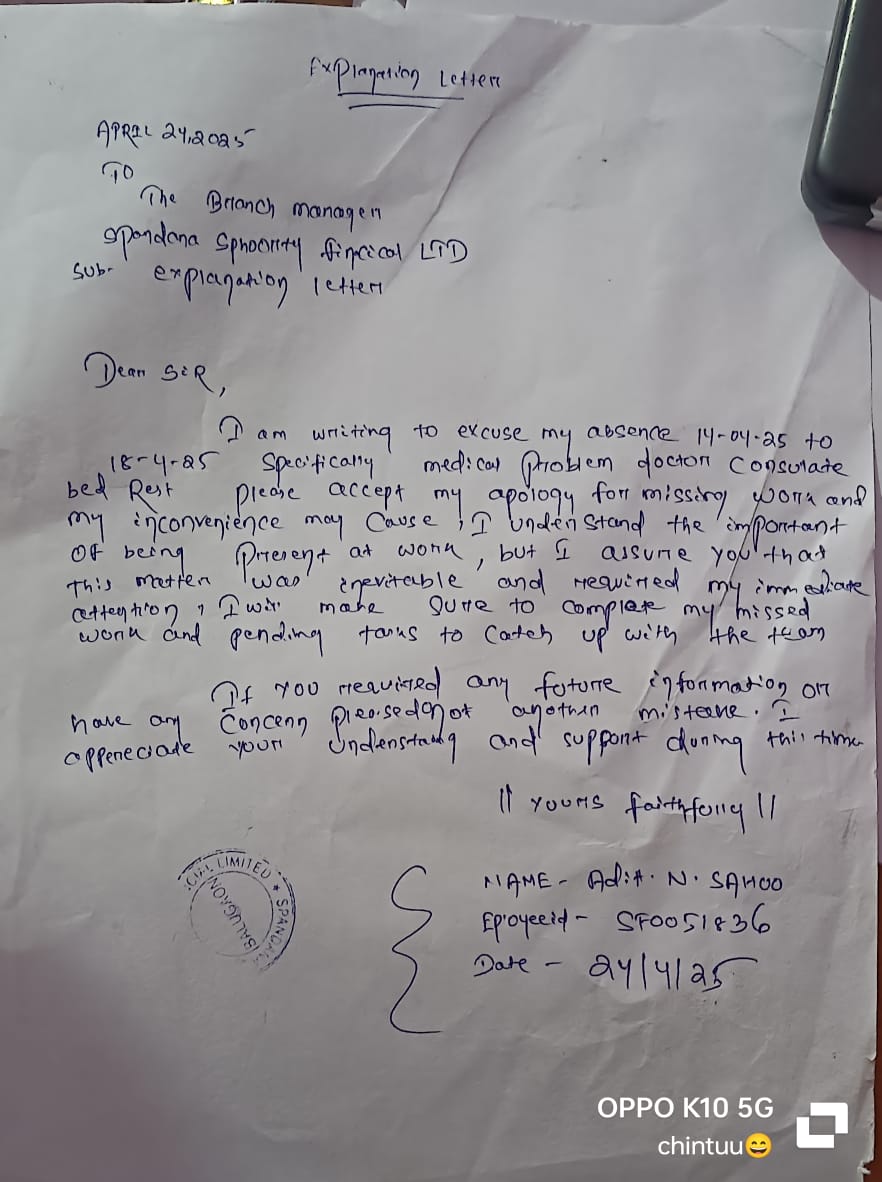 Explanation Letter
APRIL 24,2025
TO
The Branch manager
Spondana Sphoority fincical LTD
Sub- explanation letter
Dear SiR,
I am writing to excuse my absence 14-04-25 to
18-4-25 Specifically medical problem doctor Consulate
bed Rest please accept my apology for missing work and
my inconvenience may Cause, I understand the important
Of being Present at work, but I assure you that
this matter was inevitable and required my immediate
attention, I will make sure to complete my missed
work and pending tasks to Catch up with the team
If you required any future information or
have any Concern please donot anothin misteake. I
appeneciate your understang and support during this time
|| yours faithfully ||
CIAL LIMITED * SPANDA
BALUGAON
NAME - Adit. N. SAHOO
Eployeeid - SF0051836
Date - 24/4/25
OPPO K10 5G
chintuu😄